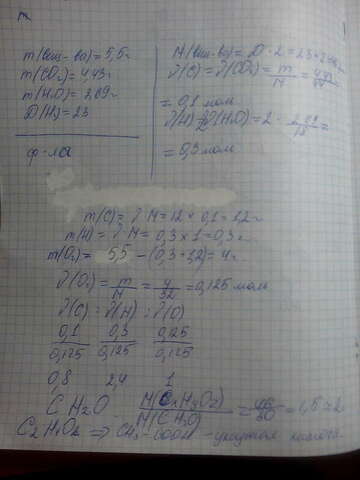 m(вещ-ва)=5,5г
m(CO₂)=4,43г
m(H₂O)=2,69г
D(H₂)=23
ф-ла
M(вещ-ва)=D·2=23·2=46г
ν(C)=ν(CO₂)=m/M=4,43/44=
=0,1 моль
ν(H)=2ν(H₂O)=2·2,69/18=
=0,3 моль
m(C)=ν·M=12×0,1=1,2г
m(H)=ν·M=0,3×1=0,3г
m(O₂)=5,5-(0,3+1,2)=4г
ν(O₂)=m/M=4/32=0,125 моль
ν(C):ν(H):ν(O)
0,1/0,125 0,3/0,125 0,125/0,125
0,8 2,4 1
CH₂O M(CxHyOz)/M(CH₂O)=46/30=1,5≈2
C₂H₄O₂ => CH₃-COOH - уксусная кислота